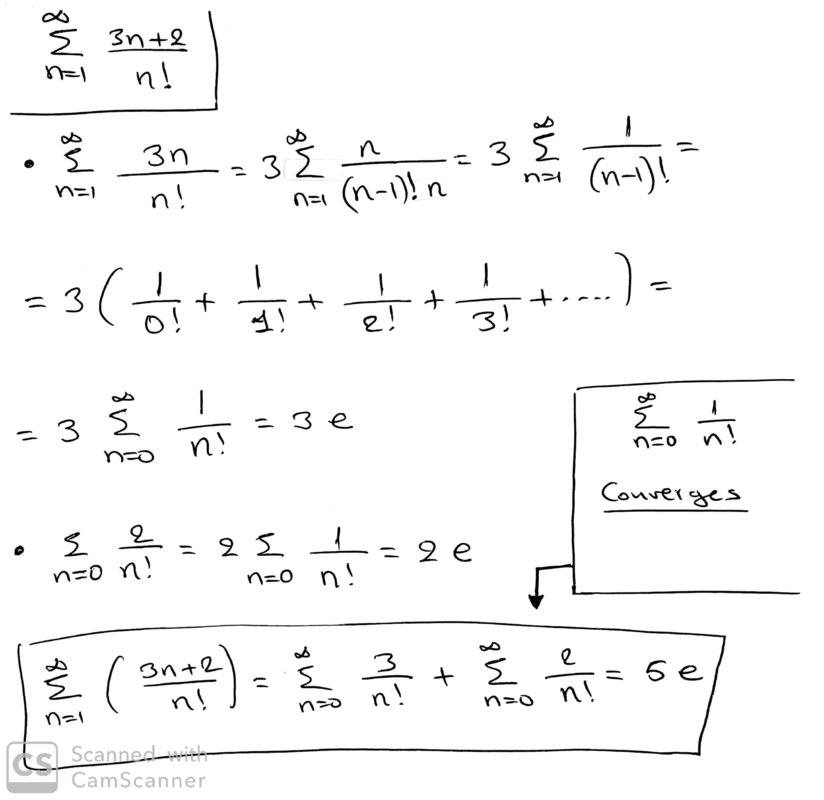 ∞ ∑ n=1 (3n+2)/n!
• ∞ ∑ n=1 3n/n! = 3 ∞ ∑ n=1 n/((n-1)! n) = 3 ∞ ∑ n=1 1/(n-1)! =
= 3 ( 1/0! + 1/1! + 1/2! + 1/3! + .... ) =
= 3 ∞ ∑ n=0 1/n! = 3 e
∞ ∑ n=0 1/n!
Converges
• ∑ n=0 2/n! = 2 ∑ n=0 1/n! = 2 e
∞ ∑ n=1 ( (3n+2)/n! ) = ∞ ∑ n=0 3/n! + ∞ ∑ n=0 2/n! = 5 e
CS
Scanned with
CamScanner